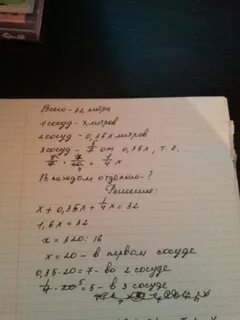 Всего - 32 литра
1 сосуд - х литров
2 сосуд - 0,35х литров
3 сосуд - 5/7 от 0,35х, т.е.
5/7 · 7/20 = 1/4 х
В каждом отдельно - ?
Решение:
х + 0,35х + 1/4 х = 32
1,6х = 32
х = 320 : 16
х = 20 - в первом сосуде
0,35 · 20 = 7 - во 2 сосуде
1/4 · 20 = 5 - в 3 сосуде